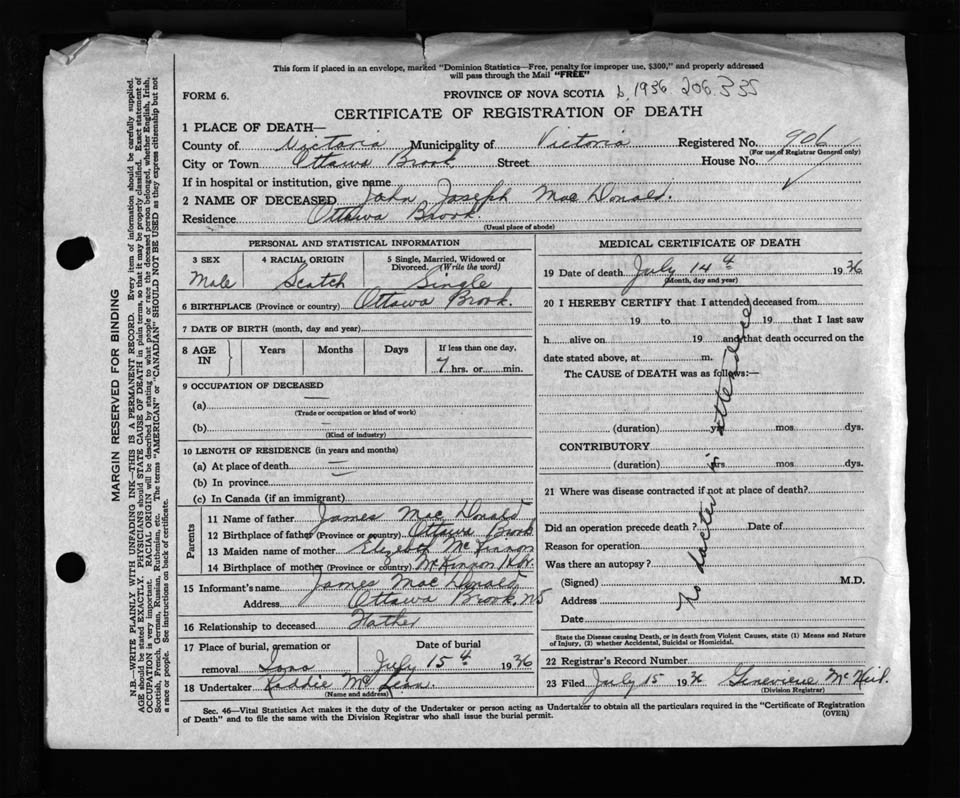 This form if placed in an envelope, marked "Dominion Statistics—Free, penalty for improper use, $300," and properly addressed
will pass through the Mail "FREE"
FORM 6.
PROVINCE OF NOVA SCOTIA b. 1936 206335
CERTIFICATE OF REGISTRATION OF DEATH
1 PLACE OF DEATH—
County of Victoria Municipality of Victoria Registered No. 906
(For use of Registrar General only)
City or Town Ottawa Brook Street House No.
If in hospital or institution, give name
2 NAME OF DECEASED John Joseph Mac Donald.
Residence Ottawa Brook.
(Usual place of abode)
PERSONAL AND STATISTICAL INFORMATION
3 SEX 4 RACIAL ORIGIN 5 Single, Married, Widowed or
Divorced. (Write the word)
Male Scotch Single
6 BIRTHPLACE (Province or country) Ottawa Brook.
7 DATE OF BIRTH (month, day and year)
8 AGE IN Years Months Days If less than one day,
7 hrs. or min.
9 OCCUPATION OF DECEASED
(a) —
(Trade or occupation or kind of work)
(b) —
(Kind of industry)
10 LENGTH OF RESIDENCE (in years and months)
(a) At place of death
(b) In province
(c) In Canada (if an immigrant)
Parents
11 Name of father James Mac Donald
12 Birthplace of father (Province or country) Ottawa Brook
13 Maiden name of mother Mc Kinnon
14 Birthplace of mother (Province or country) McKinnon Hbr.
15 Informant's name James Mac Donald
Address Ottawa Brook, NS
16 Relationship to deceased Father
17 Place of burial, cremation or Date of burial
removal Iona July 15th 1936
18 Undertaker
(Name and address)
MEDICAL CERTIFICATE OF DEATH
19 Date of death July 14th 1936
(Month, day and year)
20 I HEREBY CERTIFY that I attended deceased from
19 to 19 that I last saw
h alive on 19 and that death occurred on the
date stated above, at m.
The CAUSE of DEATH was as follows:—
(duration) yrs. mos. dys.
CONTRIBUTORY
(duration) yrs. mos. dys.
21 Where was disease contracted if not at place of death?
Did an operation precede death? Date of
Reason for operation
Was there an autopsy?
(Signed) M.D.
Address
Date
No Doctor in attendance
State the Disease causing Death, or in death from Violent Causes, state (1) Means and Nature
of Injury, (2) whether Accidental, Suicidal or Homicidal.
22 Registrar's Record Number
23 Filed July 15 1936 Genevieve McNeil.
(Division Registrar)
Sec. 46—Vital Statistics Act makes it the duty of the Undertaker or person acting as Undertaker to obtain all the particulars required in the "Certificate of Registration
of Death" and to file the same with the Division Registrar who shall issue the burial permit.
(OVER)
MARGIN RESERVED FOR BINDING
N.B.—WRITE PLAINLY WITH UNFADING INK—THIS IS A PERMANENT RECORD. Every item of information should be carefully supplied.
AGE should be stated EXACTLY. PHYSICIANS should STATE CAUSE OF DEATH in plain terms, so that it may be properly classified. Exact statement of
OCCUPATION is very important. RACIAL ORIGIN will be described by stating to what people or race the deceased person belonged, whether English, Irish,
Scottish, French, German, Russian, Ruthenian, etc. The terms "AMERICAN" or "CANADIAN" SHOULD NOT BE USED as they express citizenship but not
a race or people. See instructions on back of certificate.